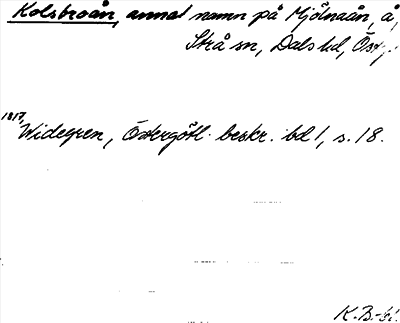 Kolsbroån, annat namn på Mjölnaån, å,
Strå sn, Dals hd, Östg.
1817,
Widegren, Östergötl. beskr. bd 1, s. 18.
K.B-bi.